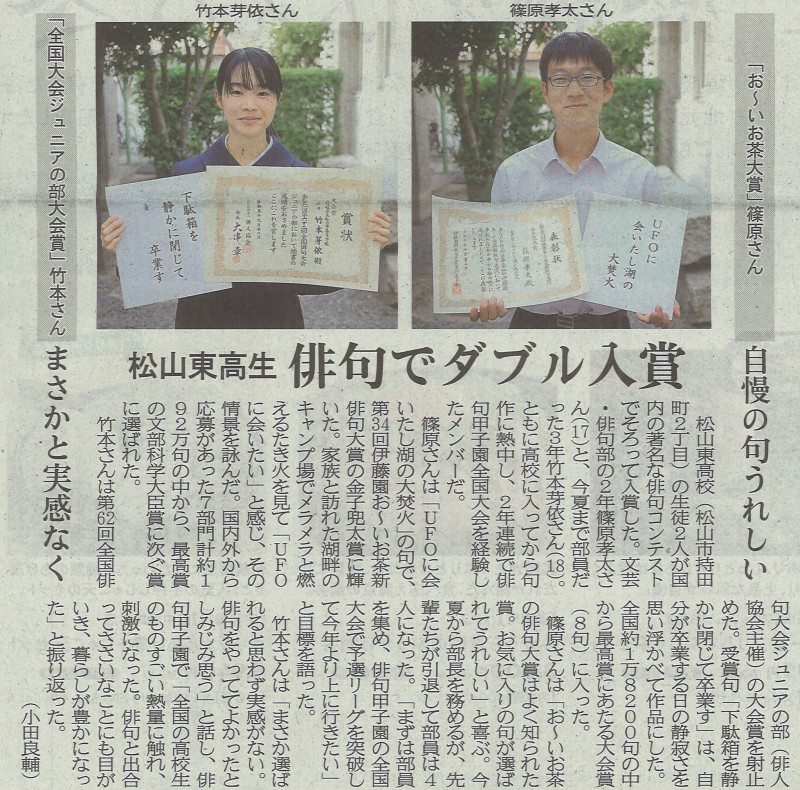 竹本芽依さん
篠原孝太さん
「お〜いお茶大賞」篠原さん
自慢の句うれしい
「全国大会ジュニアの部大会賞」竹本さん
まさかと実感なく
下駄箱を
静かに閉じて、
卒業す
賞状
竹本芽依殿
表彰状
UFOに
会いたし湖の
大焚火
松山東高生 俳句でダブル入賞
松山東高校（松山市持田
町２丁目）の生徒２人が国
内の著名な俳句コンテスト
でそろって入賞した。文芸
・俳句部の２年篠原孝太さ
ん(17)と、今夏まで部員だ
った３年竹本芽依さん(18)。
ともに高校に入ってから句
作に熱中し、２年連続で俳
句甲子園全国大会を経験し
たメンバーだ。
篠原さんは「ＵＦＯに会
いたし湖の大焚火」の句で、
第34回伊藤園お〜いお茶新
俳句大賞の金子兜太賞に輝
いた。家族と訪れた湖畔の
キャンプ場でメラメラと燃
えるたき火を見て「ＵＦＯ
に会いたい」と感じ、その
情景を詠んだ。国内外から
応募があった７部門計約１
９２万句の中から、最高賞
の文部科学大臣賞に次ぐ賞
に選ばれた。
竹本さんは第62回全国俳
句大会ジュニアの部（俳人
協会主催）の大会賞を射止
めた。受賞句「下駄箱を静
かに閉じて卒業す」は、自
分が卒業する日の静寂さを
思い浮かべて作品にした。
全国約１万８２００句の中
から最高賞にあたる大会賞
（８句）に入った。
篠原さんは「お〜いお茶
の俳句大賞はよく知られた
賞。お気に入りの句が選ば
れてうれしい」と喜ぶ。今
夏から部長を務めるが、先
輩たちが引退して部員は４
人になった。「まずは部員
を集め、俳句甲子園の全国
大会で予選リーグを突破し
て今年より上に行きたい」
と目標を語った。
竹本さんは「まさか選ば
れると思わず実感がない。
俳句をやっててよかったと
しみじみ思う」と話し、俳
句甲子園で「全国の高校生
のものすごい熱量に触れ、
刺激になった。俳句と出合
ってささいなことにも目が
いき、暮らしが豊かになっ
た」と振り返った。
（小田良輔）